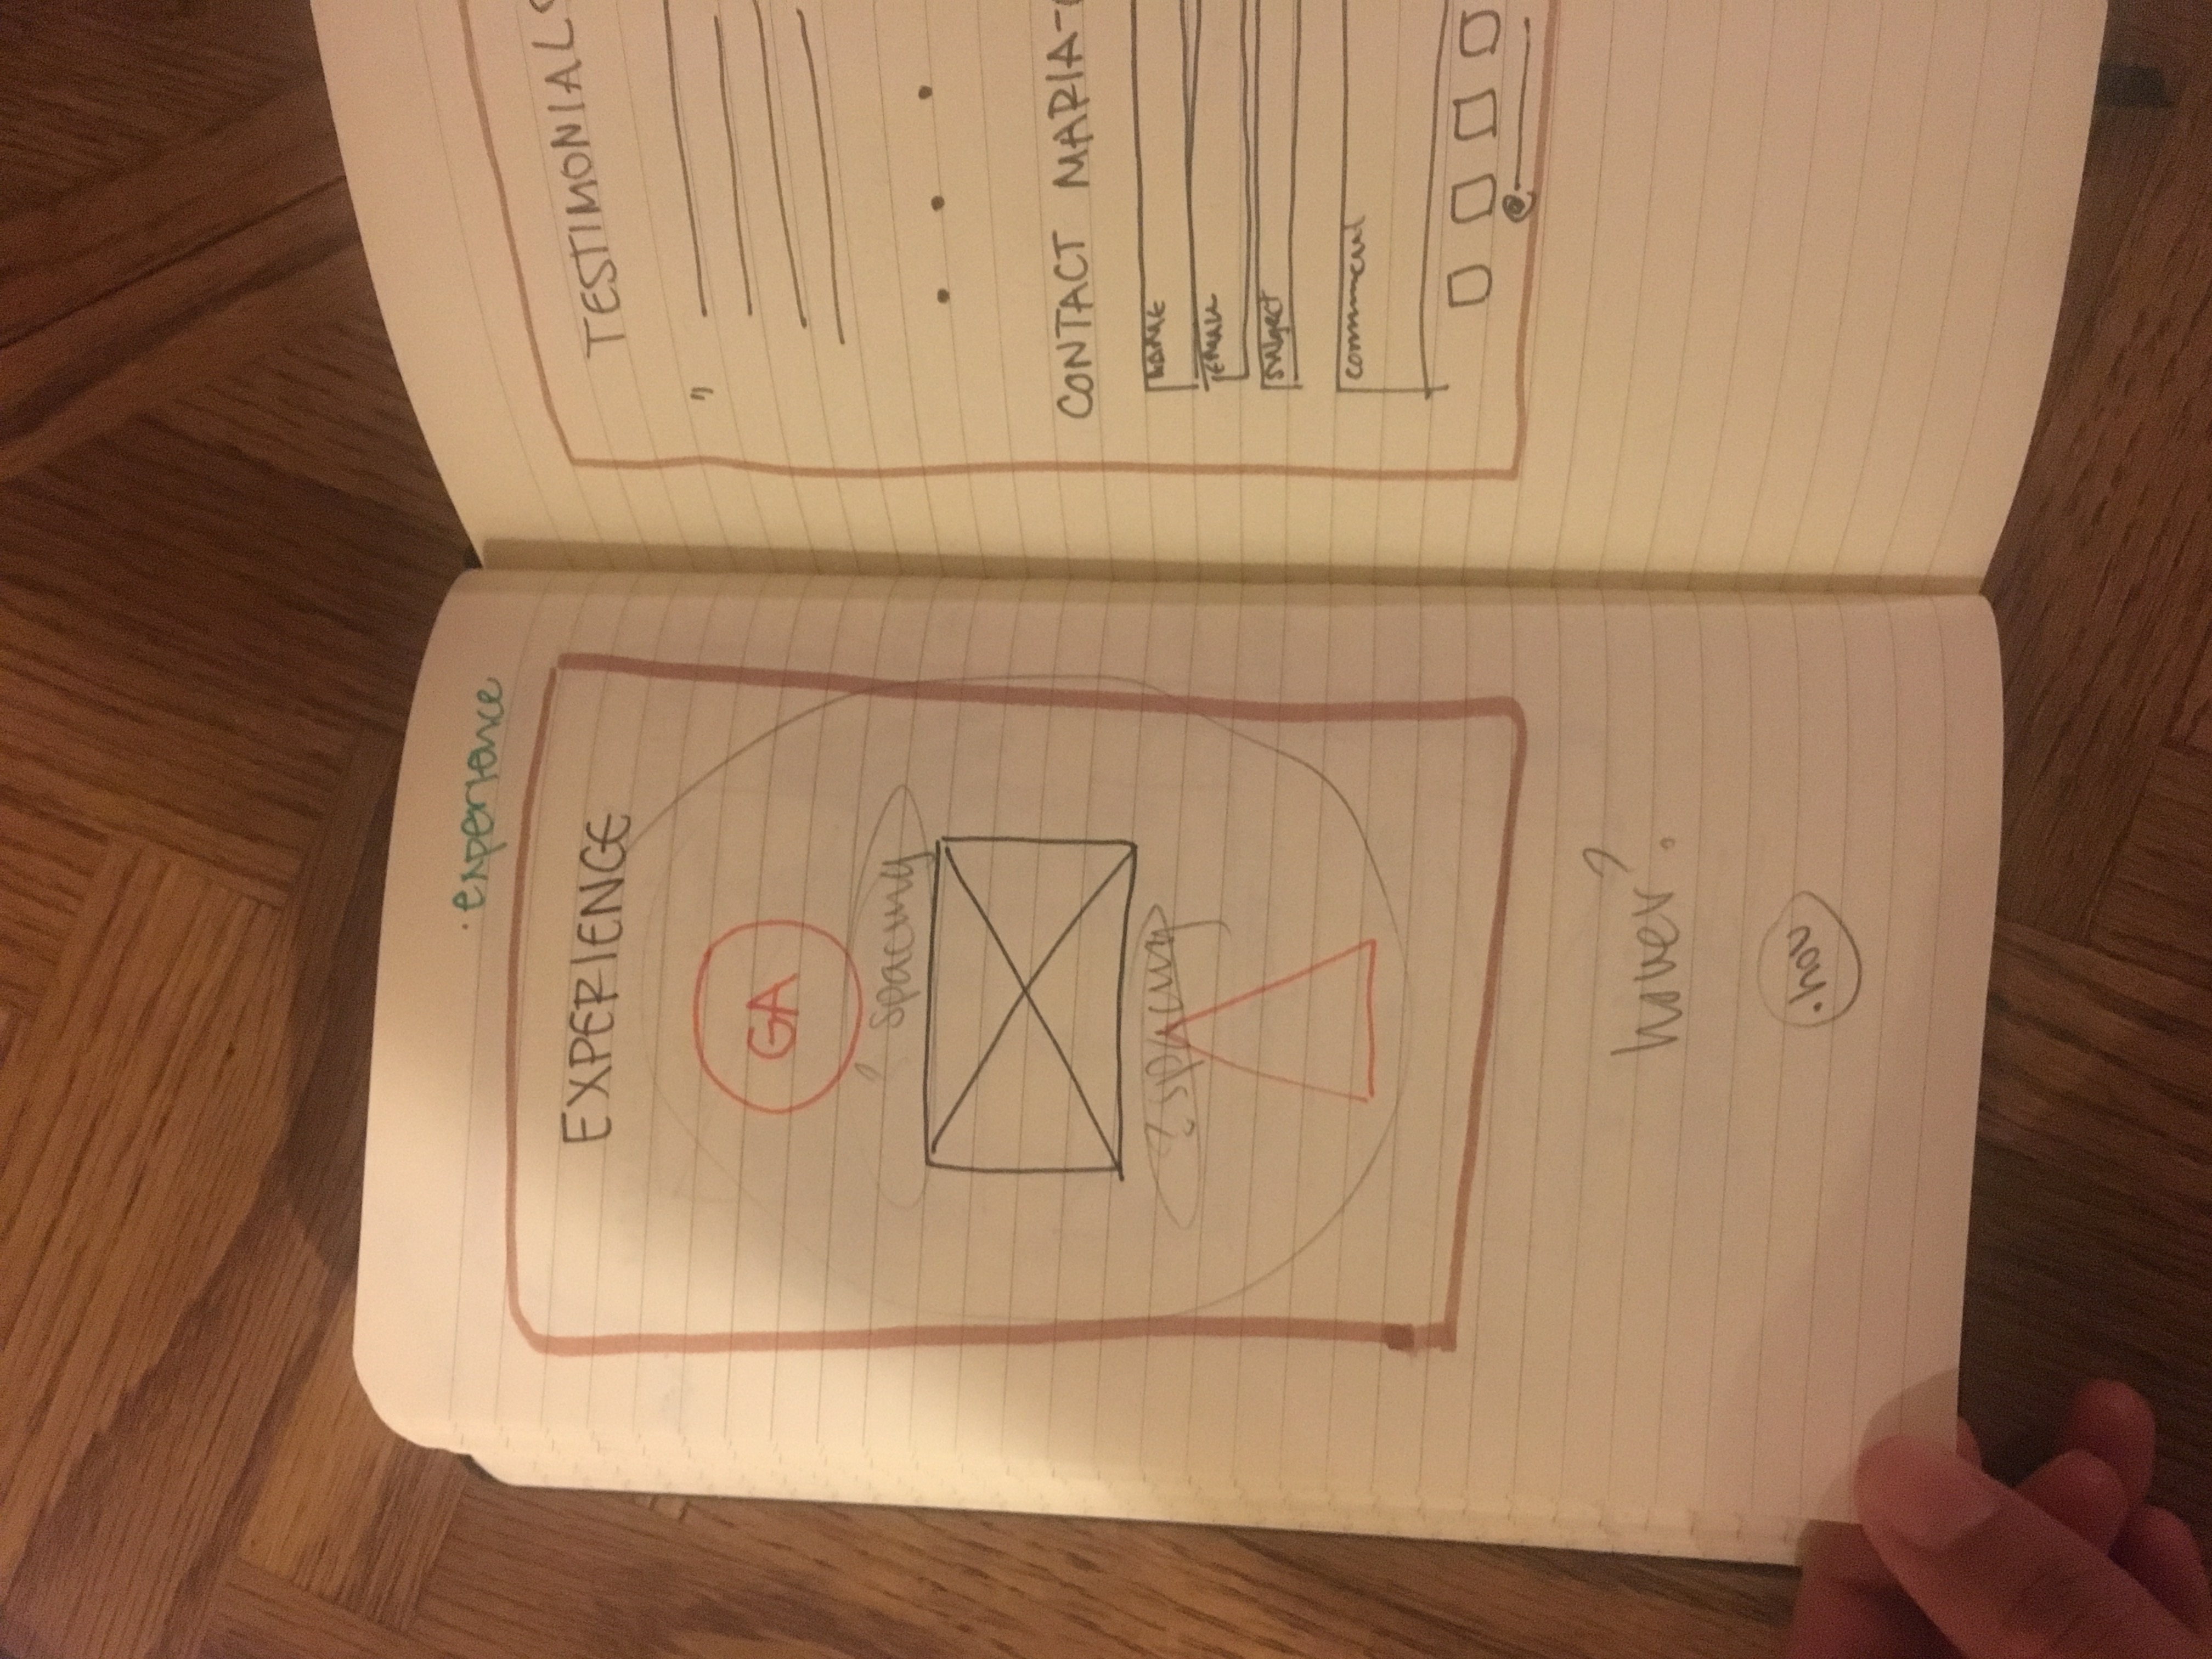 .experience
EXPERIENCE
GA
? spacing
? spacing
hover?
.hov
TESTIMONIALS
"
CONTACT MARIA-
NAME
EMAIL
subject
comment
@